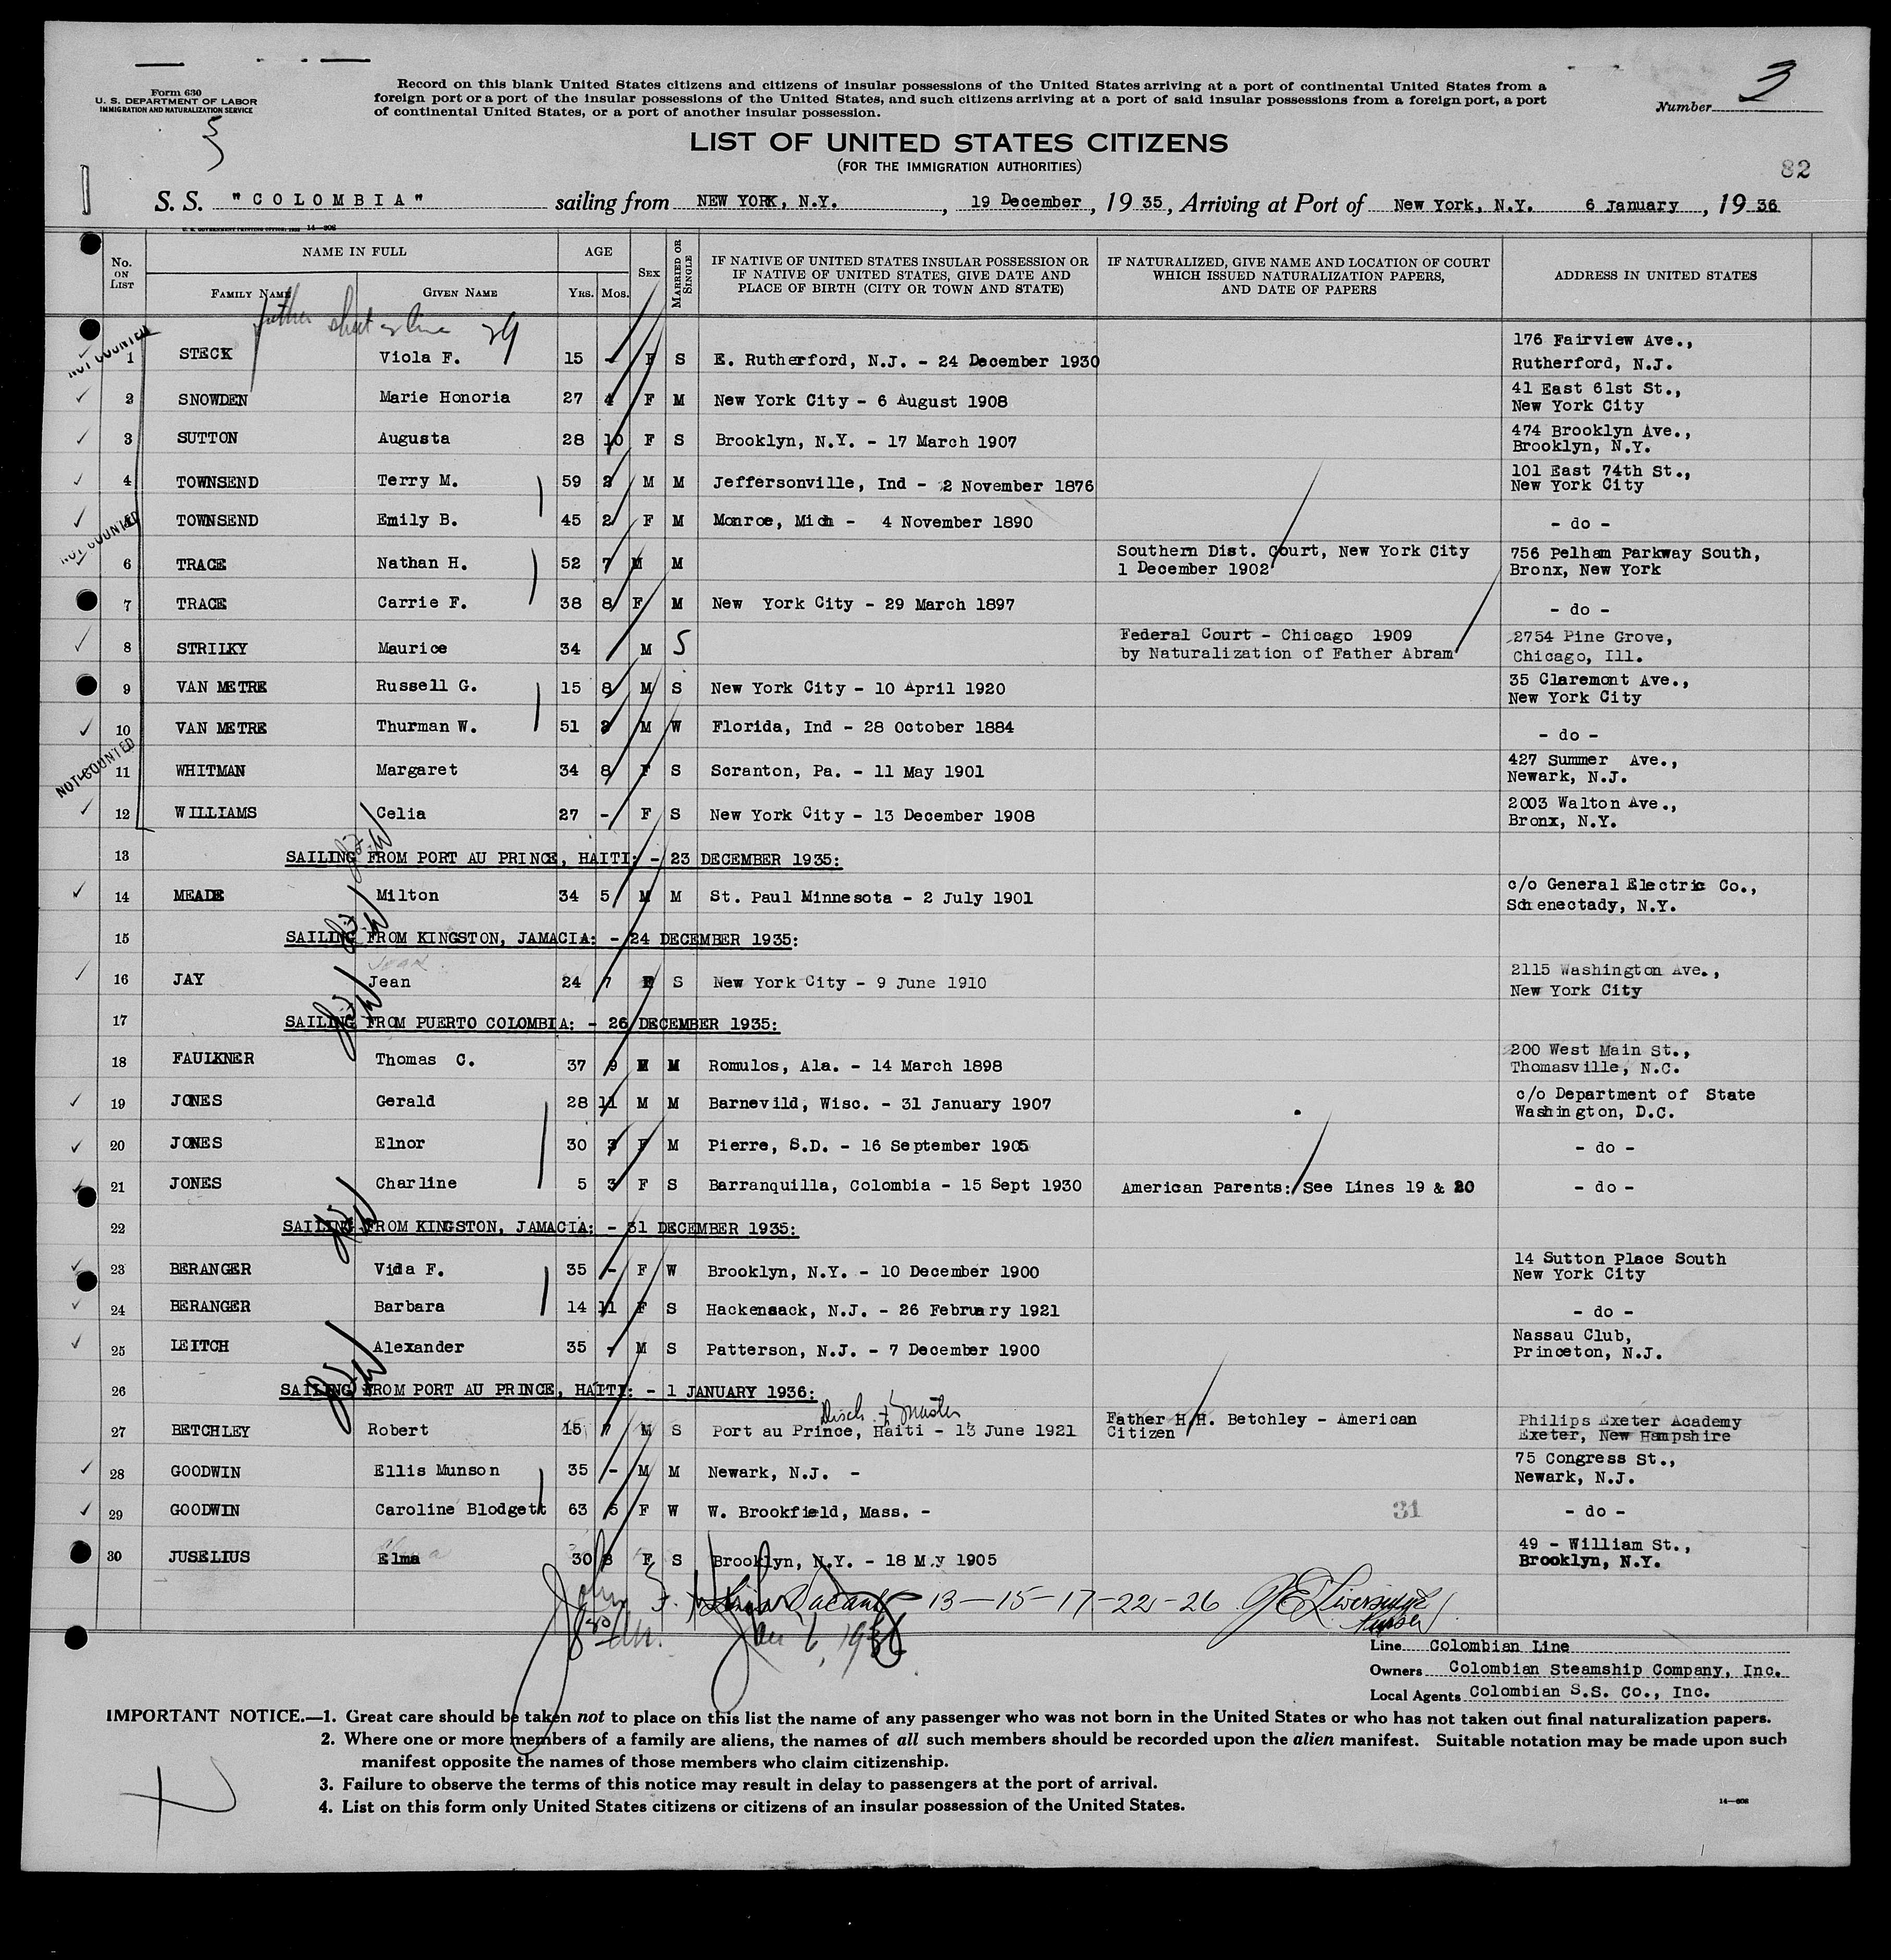 Form 630
U. S. DEPARTMENT OF LABOR
IMMIGRATION AND NATURALIZATION SERVICE
Record on this blank United States citizens and citizens of insular possessions of the United States arriving at a port of continental United States from a
foreign port or a port of the insular possessions of the United States, and such citizens arriving at a port of said insular possessions from a foreign port, a port
of continental United States, or a port of another insular possession.
Number 3
LIST OF UNITED STATES CITIZENS
(FOR THE IMMIGRATION AUTHORITIES)
82
S. S. "COLOMBIA" sailing from NEW YORK, N.Y. , 19 December , 19 35 , Arriving at Port of New York, N.Y. 6 January , 19 36
U. S. GOVERNMENT PRINTING OFFICE: 1932 14—608
No. ON LIST NAME IN FULL FAMILY NAME GIVEN NAME AGE YRS. MOS. SEX MARRIED OR SINGLE IF NATIVE OF UNITED STATES INSULAR POSSESSION OR IF NATIVE OF UNITED STATES, GIVE DATE AND PLACE OF BIRTH (CITY OR TOWN AND STATE) IF NATURALIZED, GIVE NAME AND LOCATION OF COURT WHICH ISSUED NATURALIZATION PAPERS, AND DATE OF PAPERS ADDRESS IN UNITED STATES
father sheet 2 line 29
NOT COUNTED
1 STECK Viola F. 15 - F S E. Rutherford, N.J. - 24 December 1930 176 Fairview Ave., Rutherford, N.J.
2 SNOWDEN Marie Honoria 27 4 F M New York City - 6 August 1908 41 East 61st St., New York City
3 SUTTON Augusta 28 10 F S Brooklyn, N.Y. - 17 March 1907 474 Brooklyn Ave., Brooklyn, N.Y.
4 TOWNSEND Terry M. 59 2 M M Jeffersonville, Ind - 2 November 1876 101 East 74th St., New York City
TOWNSEND Emily B. 45 2 F M Monroe, Mich - 4 November 1890 - do -
NOT COUNTED
6 TRACE Nathan H. 52 7 M M Southern Dist. Court, New York City 1 December 1902 756 Pelham Parkway South, Bronx, New York
7 TRACE Carrie F. 38 8 F M New York City - 29 March 1897 - do -
8 STRILKY Maurice 34 M S Federal Court - Chicago 1909 by Naturalization of Father Abram 2754 Pine Grove, Chicago, Ill.
9 VAN METRE Russell G. 15 8 M S New York City - 10 April 1920 35 Claremont Ave., New York City
10 VAN METRE Thurman W. 51 2 M W Florida, Ind - 28 October 1884 - do -
NOT COUNTED
11 WHITMAN Margaret 34 8 F S Scranton, Pa. - 11 May 1901 427 Summer Ave., Newark, N.J.
12 WILLIAMS Celia 27 - F S New York City - 13 December 1908 2003 Walton Ave., Bronx, N.Y.
13 SAILING FROM PORT AU PRINCE, HAITI: - 23 DECEMBER 1935:
14 MEADE Milton 34 5 M M St. Paul Minnesota - 2 July 1901 c/o General Electric Co., Schenectady, N.Y.
15 SAILING FROM KINGSTON, JAMACIA: - 24 DECEMBER 1935:
16 JAY Jean 24 7 F S New York City - 9 June 1910 2115 Washington Ave., New York City
17 SAILING FROM PUERTO COLOMBIA: - 26 DECEMBER 1935:
18 FAULKNER Thomas C. 37 9 M M Romulos, Ala. - 14 March 1898 200 West Main St., Thomasville, N.C.
19 JONES Gerald 28 11 M M Barnevild, Wisc. - 31 January 1907 c/o Department of State Washington, D.C.
20 JONES Elnor 30 3 F M Pierre, S.D. - 16 September 1905 - do -
21 JONES Charline 5 3 F S Barranquilla, Colombia - 15 Sept 1930 American Parents: See Lines 19 & 20 - do -
22 SAILING FROM KINGSTON, JAMACIA: - 31 DECEMBER 1935:
23 BERANGER Vida F. 35 - F W Brooklyn, N.Y. - 10 December 1900 14 Sutton Place South New York City
24 BERANGER Barbara 14 11 F S Hackensack, N.J. - 26 February 1921 - do -
25 LEITCH Alexander 35 - M S Patterson, N.J. - 7 December 1900 Nassau Club, Princeton, N.J.
26 SAILING FROM PORT AU PRINCE, HAITI: - 1 JANUARY 1936:
27 BETCHLEY Robert 15 7 M S Port au Prince, Haiti - 13 June 1921 Father H.H. Betchley - American Citizen Philips Exeter Academy Exeter, New Hampshire
28 GOODWIN Ellis Munson 35 - M M Newark, N.J. - 75 Congress St., Newark, N.J.
29 GOODWIN Caroline Blodgett 63 5 F W W. Brookfield, Mass. - 31 - do -
30 JUSELIUS Elma 30 8 F S Brooklyn, N.Y. - 18 May 1905 49 - William St., Brooklyn, N.Y.
13-15-17-22-26
Purser
Jan 6, 1936
Line Colombian Line
Owners Colombian Steamship Company, Inc.
Local Agents Colombian S.S. Co., Inc.
IMPORTANT NOTICE.—1. Great care should be taken not to place on this list the name of any passenger who was not born in the United States or who has not taken out final naturalization papers.
2. Where one or more members of a family are aliens, the names of all such members should be recorded upon the alien manifest. Suitable notation may be made upon such
manifest opposite the names of those members who claim citizenship.
3. Failure to observe the terms of this notice may result in delay to passengers at the port of arrival.
4. List on this form only United States citizens or citizens of an insular possession of the United States.
14—608